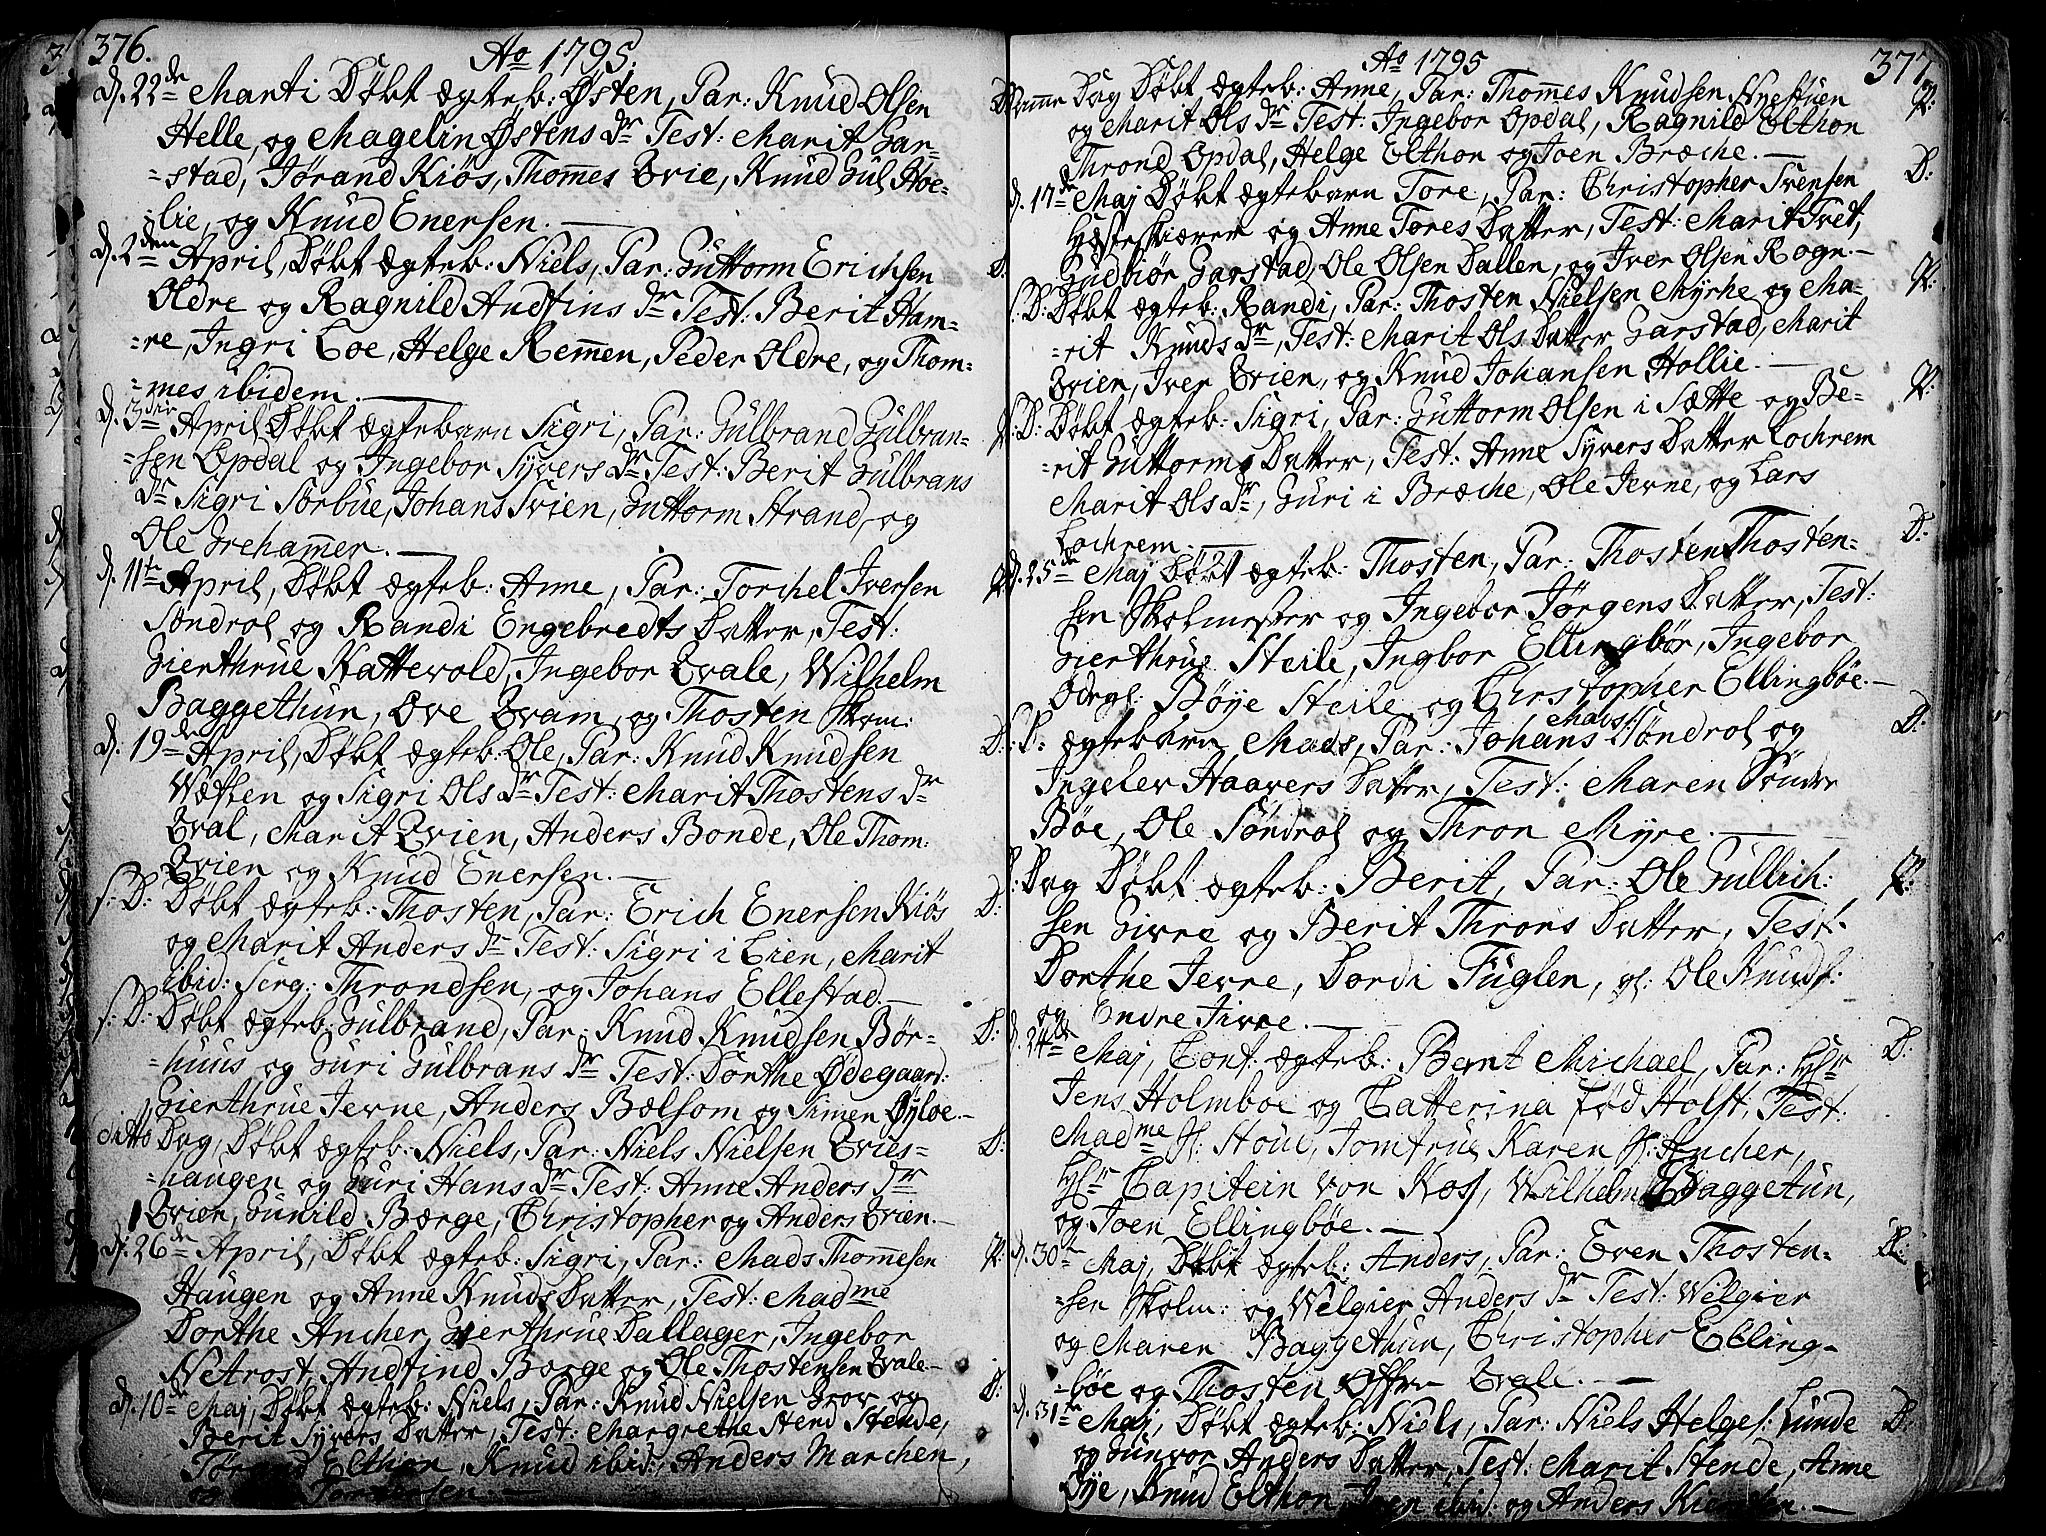 376.
Ao 1795.
d. 22de Marti Døbt ægteb: Østen, Par: Knud Olsen
Helle, og Magelin Østens Dr Test: Marit Gar=
=stad, Jørand Kiøs, Thomes Qvie, Knud Gul Hoe=
=lie, og Knud Enersen. —
d. 2den April, Døbt ægteb: Niels, Par: Guttorm Erichsen D.
Oldre og Ragnild Andfins Dr Test: Berit Ham=
=re, Ingri Loe, Helge Remmen, Peder Oldre, og Thom=
=mes ibidem. —
d. 3die April Døbt ægtebarn Sigri, Par: Gulbrand Gulbran=
=sen Opdal og Ingebor Syvers Dr Test: Berit Gulbrans
Dr Sigri Sorbue, Johans Svien, Guttorm Strand, og
Ole Grehamer. —
d. 11te April, Døbt ægteb: Anne, Par: Torchel Iversen
Søndrol og Randi Engebredts Datter, Test:
Gierthrue Kattevold, Ingebor Qvale, Wilhelm
Baggethun, Ove Qvam, og Thosten Skom:
d. 19de April, Døbt ægteb: Ole, Par: Knud Knudsen D:
Wætten og Sigri Ols Dr Test: Marit Thostens Dr
Qval, Marit Qvien, Anders Bonde, Ole Thom:
Qvien og Knud Enersen. —
s: D: Døbt ægteb: Thosten, Par: Erich Enersen Kiøs D:
og Marit Anders Dr Test: Sigri i Lien, Marit
ibid: Serg: Throndsen, og Johans Ellestad. —
s: D: Døbt ægteb: Gulbrand, Par: Knud Knudsen Bør= D:
=huus og Guri Gulbrans Dr Test: Dorthe Ødegaard:
Gierthrue Jevne, Anders Bælsom og Simen Øyloe. —
ditto Dag, Døbt ægteb: Niels, Par: Niels Nielsen Qvies= D:
=haugen og Guri Hans Dr Test: Anne Anders Dr
Qvien, Gunild Børge, Christopher og Anders Qvien. —
d. 26de April, Døbt ægteb: Sigri, Par: Mads Thomesen
Haugen og Anne Knuds Datter, Test: Madme
Dorthe Ancher, Gierthrue Dallager, Ingebor
Netrost, Andfind Børge og Ole Thostensen Qvale. —
d. 10de Maj, Døbt ægteb: Niels, Par: Knud Nielsen Grov og D:
Berit Syvers Datter, Test: Margrethe Stend Stende,
Elthon, Knud ibid:, Anders Marchen,
og
377
Ao 1795
Samme Dag Døbt ægteb: Anne, Par: Thommes Knudsen Nrestuen
og Marit Ols Dr Test: Ingebor Opdal, Ragnild Elthon
Thrond Opdal, Helge Elthon og Joen Bræche. —
d. 17de Maj Døbt ægtebarn Tore, Par: Christopher Svensen D:
Hesteskiærer og Anne Tores Datter, Test: Marit Tvet,
Gudbiør Garstad, Ole Olsen Dallen, og Iver Olsen Rogn. —
s: D: Døbt ægteb: Randi, Par: Thosten Nielsen Myrhe og Ma=
=rit Knuds Dr, Test: Marit Ols Datter Garstad, Marit
Qvien, Iver Qvien, og Knud Johansen Hollie. —
s: D: Døbt ægteb: Sigri, Par: Guttorm Olsen i Sætte og Be=
=rit Guttorms Datter, Test: Anne Syvers Datter Lochrem
Marit Ols Dr, Guri i Bræche, Ole Jevne, og Lars
Lochrem. —
d. 25de Maj Døbt ægteb: Thosten, Par: Thosten Thosten= D:
sen Skolmester og Ingebor Jørgens Datter, Test:
Gierthrue Steile, Ingbor Ellingbør, Ingebor
Ødegl: Bøye Steile og Christopher Ellingbøe. —
S: D: ægtebarn Mads, Par: Johans Mads: Søndrol og D:
Ingelev Haavers Datter, Test: Maren Søndre
Bøe, Ole Søndrol og Thron Myre. —
s: Dag Døbt ægteb: Berit, Par: Ole Gullich:
sen Givre og Berit Throns Datter, Test:
Dorthe Jevne, Dordi Fuglen, gl: Ole Knuds:
og Endre Jevne. —
d. 24de Maj, Conf: ægteb: Bernt Michael, Par: Hr D:
Jens Holmboe og Catterina fød Holst, Test:
Madme sl: Houe, Jomfrue Karen sl: Ancher,
Hr Capitein von Kos, Wilhelm Baggetun,
og Joen Ellingbøe. —
d. 30te Maj, Døbt ægteb: Anders, Par: Even Thosten= D:
=sen Skolm: og Welgier Anders Dr Test: Welgier
og Maren Baggethun, Christopher Elling=
=bøe og Thosten Qvale. —
d. 31te Maj, Døbt ægteb: Niels, Par: Niels Helges: Lunde D:
og Gunvor Anders Datter, Test: Marit Stende, Anne
Øye, Knud Elthon, ibid: og Anders —